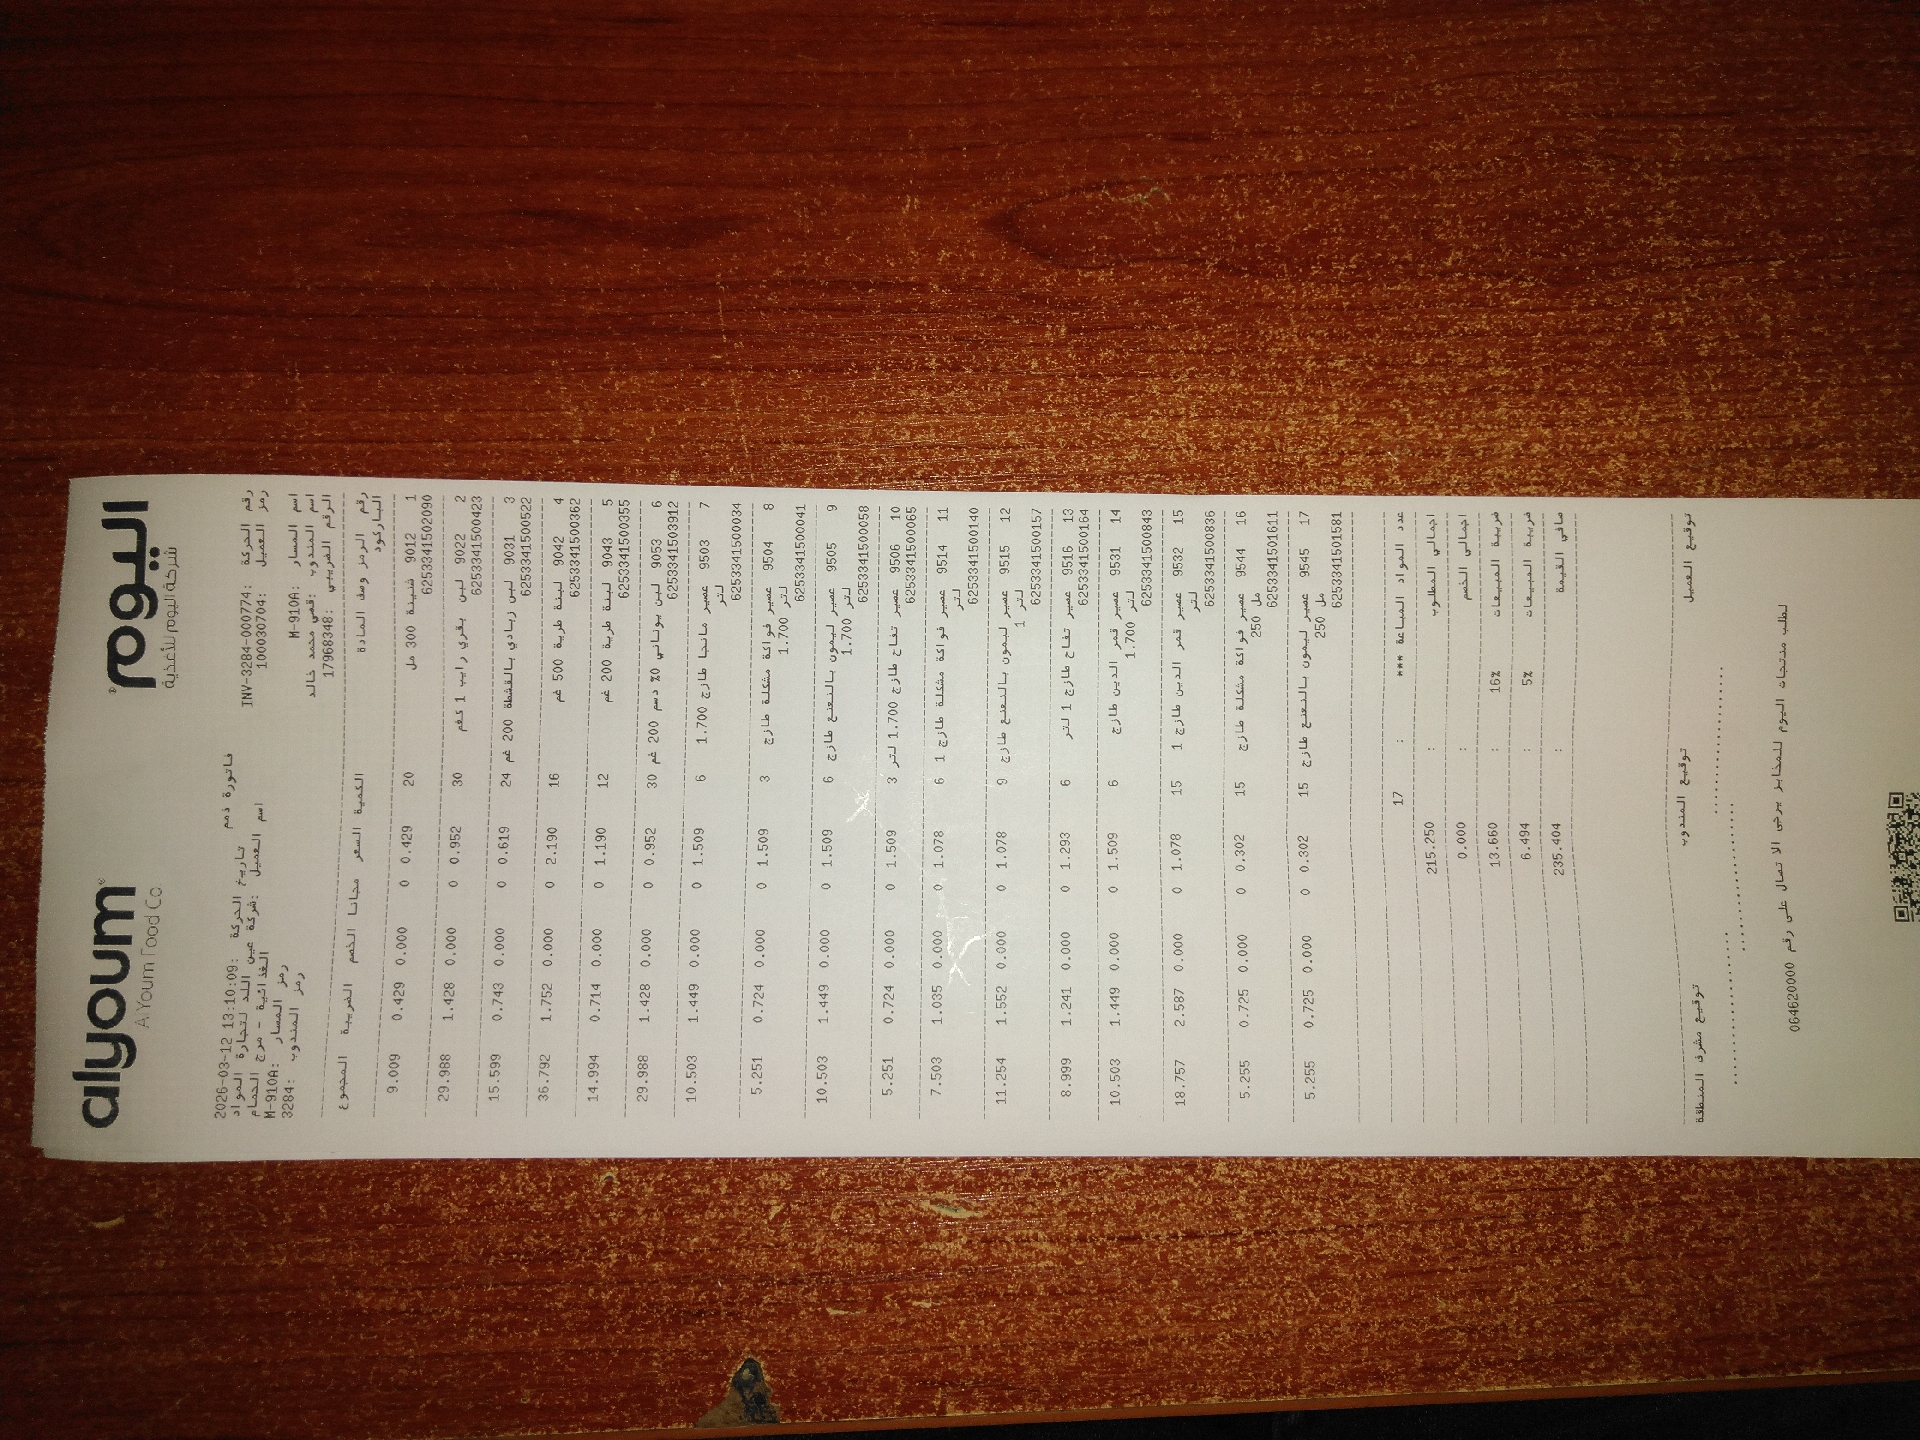 alyoum اليوم
AlYoum Food Co شركة اليوم للأغذية
فاتورة ذمم
رقم الحركة :INV-3284-000774 تاريخ الحركة :2026-03-12 13:10:09
رمز العميل :100030704 اسم العميل :شركة عين الله لتجارة المواد
الغذائية - مرج الحمام
اسم المسار :M-910A رمز المسار :M-910A
اسم المندوب :قصي محمد خالد رمز المندوب :3284
الرقم الضريبي :17968348
رقم الرمز وصف المادة الكمية السعر مجانا الخصم الضريبة المجموع
الباركود
1 9012 شنينة 300 مل 20 0.429 0 0.000 0.429 9.009
6253341502090
2 9022 لبن بقري رايب 1 كغم 30 0.952 0 0.000 1.428 29.988
6253341500423
3 9031 لبن زبادي بالقشطة 200 غم 24 0.619 0 0.000 0.743 15.599
6253341500522
4 9042 لبنة طرية 500 غم 16 2.190 0 0.000 1.752 36.792
6253341500362
5 9043 لبنة طرية 200 غم 12 1.190 0 0.000 0.714 14.994
6253341500355
6 9053 لبن يوناني 0% دسم 200 غم 30 0.952 0 0.000 1.428 29.988
6253341503912
7 9503 عصير مانجا طازج 1.700 6 1.509 0 0.000 1.449 10.503
لتر
6253341500034
8 9504 عصير فواكة مشكلة طازج 3 1.509 0 0.000 0.724 5.251
1.700 لتر
6253341500041
9 9505 عصير ليمون بالنعنع طازج 6 1.509 0 0.000 1.449 10.503
1.700 لتر
6253341500058
10 9506 عصير تفاح طازج 1.700 لتر 3 1.509 0 0.000 0.724 5.251
6253341500065
11 9514 عصير فواكة مشكلة طازج 1 6 1.078 0 0.000 1.035 7.503
لتر
6253341500140
12 9515 عصير ليمون بالنعنع طازج 9 1.078 0 0.000 1.552 11.254
1 لتر
6253341500157
13 9516 عصير تفاح طازج 1 لتر 6 1.293 0 0.000 1.241 8.999
6253341500164
14 9531 عصير قمر الدين طازج 6 1.509 0 0.000 1.449 10.503
1.700 لتر
6253341500843
15 9532 عصير قمر الدين طازج 1 15 1.078 0 0.000 2.587 18.757
لتر
6253341500836
16 9544 عصير فواكة مشكلة طازج 15 0.302 0 0.000 0.725 5.255
250 مل
6253341501611
17 9545 عصير ليمون بالنعنع طازج 15 0.302 0 0.000 0.725 5.255
250 مل
6253341501581
عدد المواد المباعة *** : 17
اجمالي المطلوب : 215.250
اجمالي الخصم : 0.000
ضريبة المبيعات 16% : 13.660
ضريبة المبيعات 5% : 6.494
صافي القيمة : 235.404
توقيع العميل توقيع المندوب توقيع مشرف المنطقة
لطلب منتجات اليوم للمخابز يرجى الاتصال على رقم 064620000